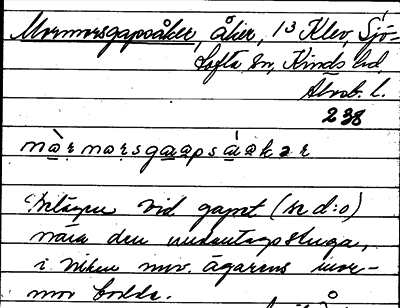 Mormorsgapsåker, åker, 13 Klev, Sjö-
tofta sn, Kinds hd,
Älvsb. l.
238
mòrmorsgaapsååkər
Belägen vid gapet (se d:o)
nära den undantagsstuga,
i vilken nuv. ägarens mor-
mor bodde.